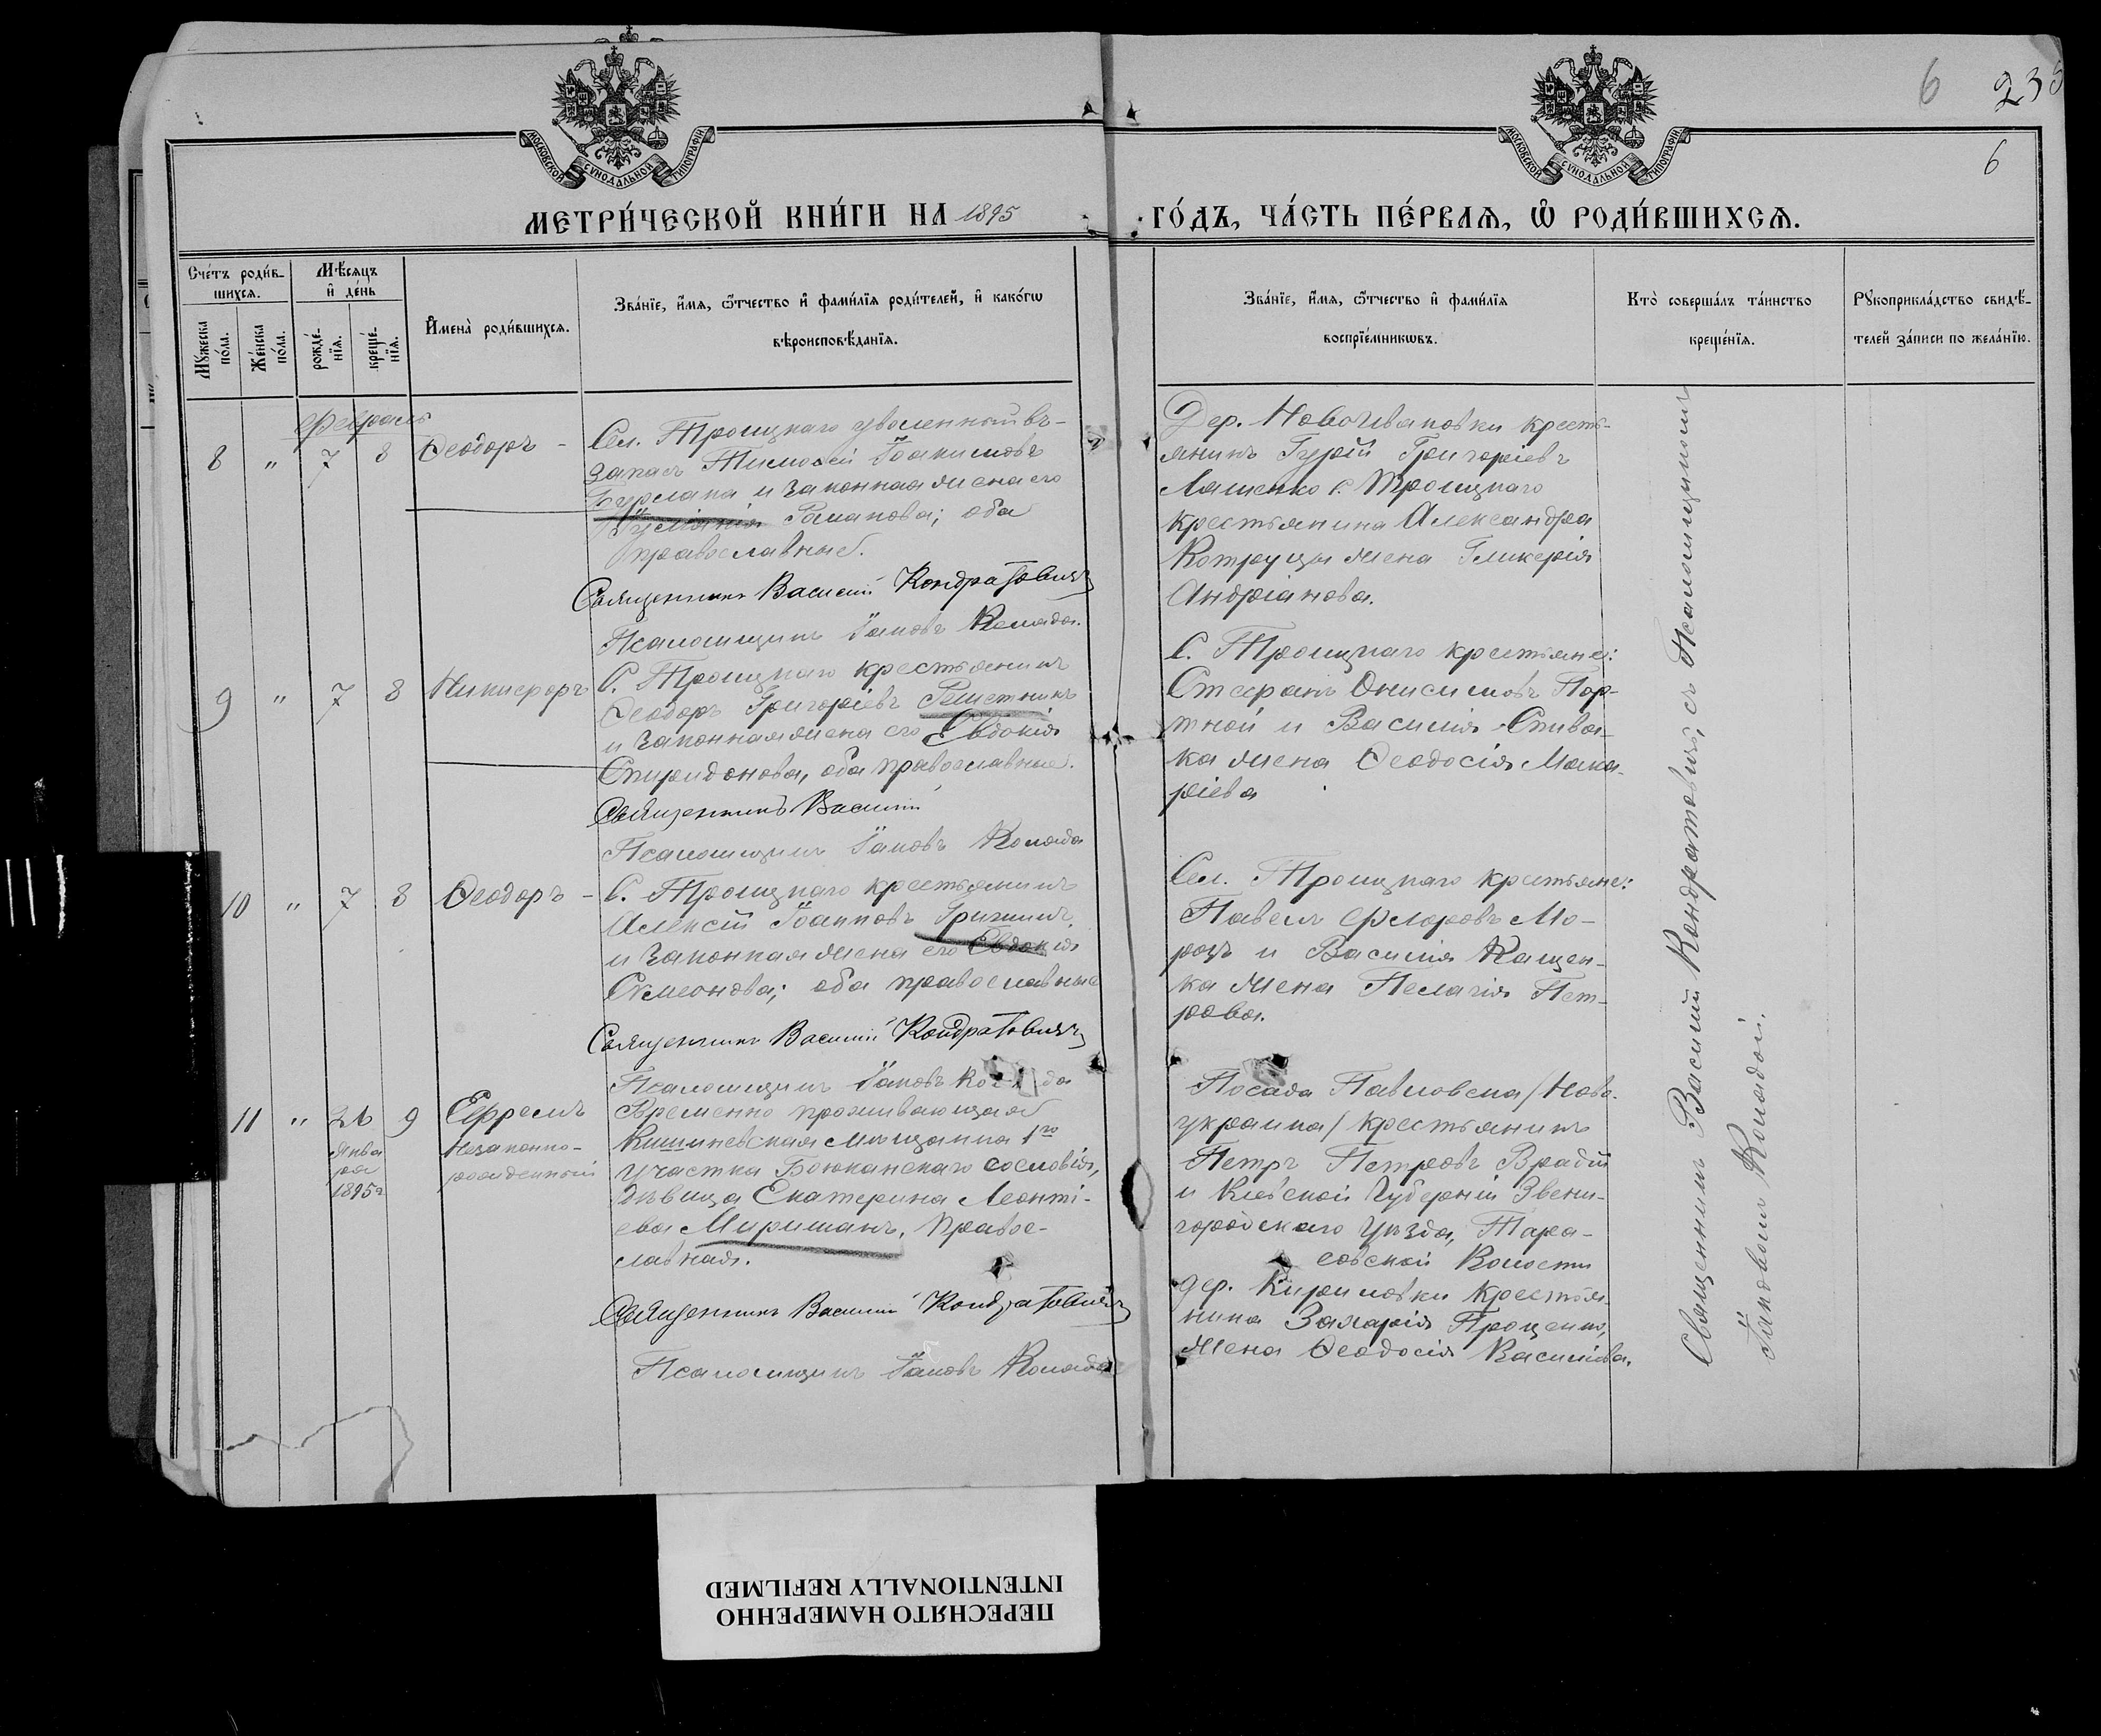 6 235
6
МОСКОВСКОЙ СѴНОДАЛЬНОЙ ТИПОГРАФІИ
МОСКОВСКОЙ СѴНОДАЛЬНОЙ ТИПОГРАФІИ
МЕТРИ́ЧЕСКОЙ КНИ́ГИ НА 1895
ГО́ДЪ, ЧА́СТЬ ПЕ́РВАѦ, Ѡ РОДИ́ВШИХСѦ.
Сче́тъ роди́в-
шихсѧ.
Мꙋжеска
по́ла.
Же́нска
по́ла.
Мѣ́сѧцъ
и҆ де́нь
рожде́-
нїѧ.
креще́-
нїѧ.
И҆мена̀ роди́вшихсѧ.
Зва́нїе, и҆́мѧ, ѻ҆́тчество и҆ фами́лїѧ роди́телей, и҆ како́гѡ
вѣроисповѣ́данїѧ.
Зва́нїе, и҆́мѧ, ѻ҆́тчество и҆ фами́лїѧ
воспрїе́мникѡвъ.
Кто̀ соверша́лъ та́инство
креще́нїѧ.
Рꙋкоприкла́дство свидѣ́-
телей за́писи по жела́нїю.
Февраль
8 " 7 8 Ѳеодоръ -
Сел. Троицкаго уволенный въ
запасъ Тимоѳей Іоакимовъ
Бурлака и законная жена его
Романова; оба
православные.
Священникъ Василій Кондратовичъ
Псаломщикъ Іаковъ Коляда.
Дер. Новоивановки кресть-
янинъ Гурій Григоріевъ
Ляшенко с. Троицкаго
крестьянина Александра
Котруцы жена Гликерія
Андріанова.
9 " 7 8 Никифоръ
С. Троицкаго крестьянинъ
Ѳеодоръ Григоріевъ Решетникъ
и законная жена его Евдокія
Спиридонова, оба православные.
Священникъ Василій
Псаломщикъ Іаковъ Коляда
С. Троицкаго крестьяне:
Стефанъ Онисимовъ Пор-
тной и Василія Спива-
ка жена Ѳеодосія Мака-
ріева
10 " 7 8 Ѳеодоръ -
С. Троицкаго крестьянинъ
Алексій Іоанновъ Гришинъ
и законная жена его Евдокія
Симеонова; оба православные
Священникъ Василій Кондратовичъ
Псаломщикъ Іаковъ Коляда
Сел. Троицкаго крестьяне:
Павелъ Флоровъ Мо-
розъ и Василія Кащен-
ка жена Пелагія Пет-
рова.
11 " 26 9 Ефремъ
Янва
ря
1895 г.
Незаконно-
рожденный
Временно проживающая
Кишиневская мѣщанка 1го
участка Боюканскаго сословія,
дѣвица Екатерина Леонті-
ева Миришанъ, правос-
лавная.
Священникъ Василій Кондратовичъ
Псаломщикъ Іаковъ Коляда
Посада Павловска /Ново-
украинка/ крестьянинъ
Петръ Петровъ Врадій
и Кіевской Губерніи Звени-
городскаго Уѣзда, Тара-
совской Волости
дер. Кириловки крестья-
нина Захарія Проценко,
жена Ѳеодосія Василіева.
Священникъ Василій Кондратовичъ, съ Псаломщикомъ
Іаковомъ Колядой.
ПЕРЕСНЯТО НАМЕРЕННО
INTENTIONALLY REFILMED